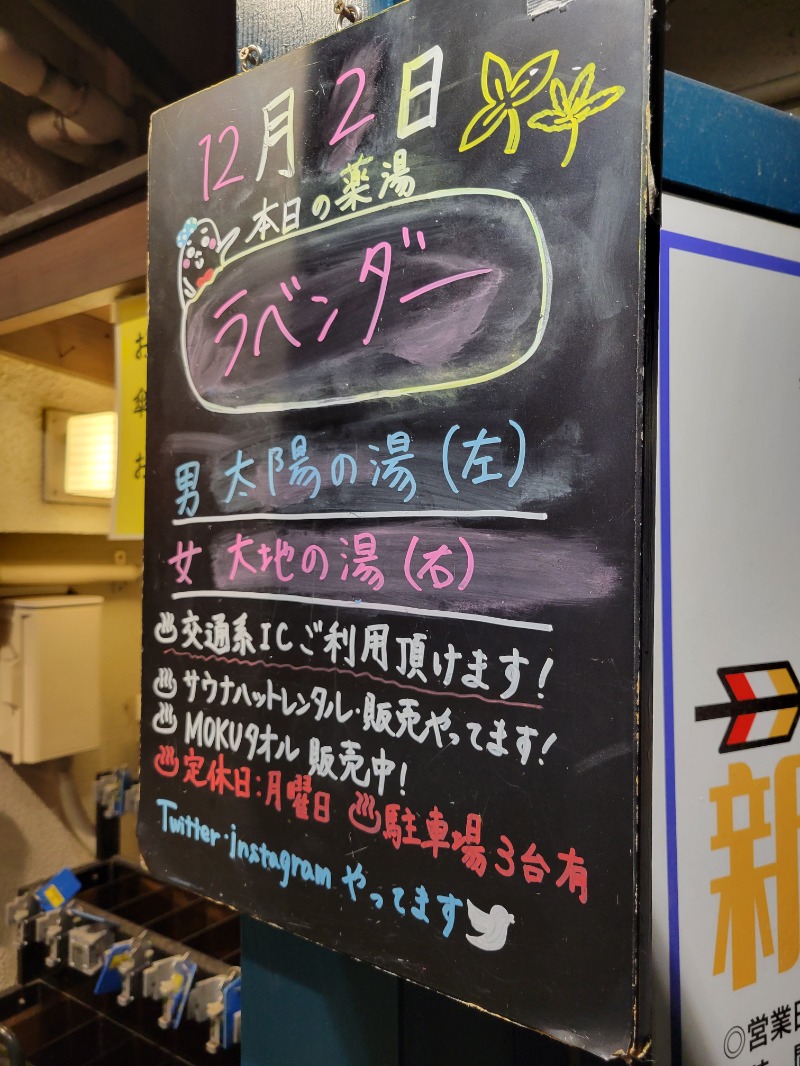 12月2日
本日の薬湯
ラベンダー
男 太陽の湯(左)
女 大地の湯(右)
♨交通系ICご利用頂けます!
♨サウナハットレンタル・販売やってます!
♨MOKUタオル 販売中!
♨定休日:月曜日 ♨駐車場3台有
Twitter・instagramやってます
お
傘
お
新
◎営業日